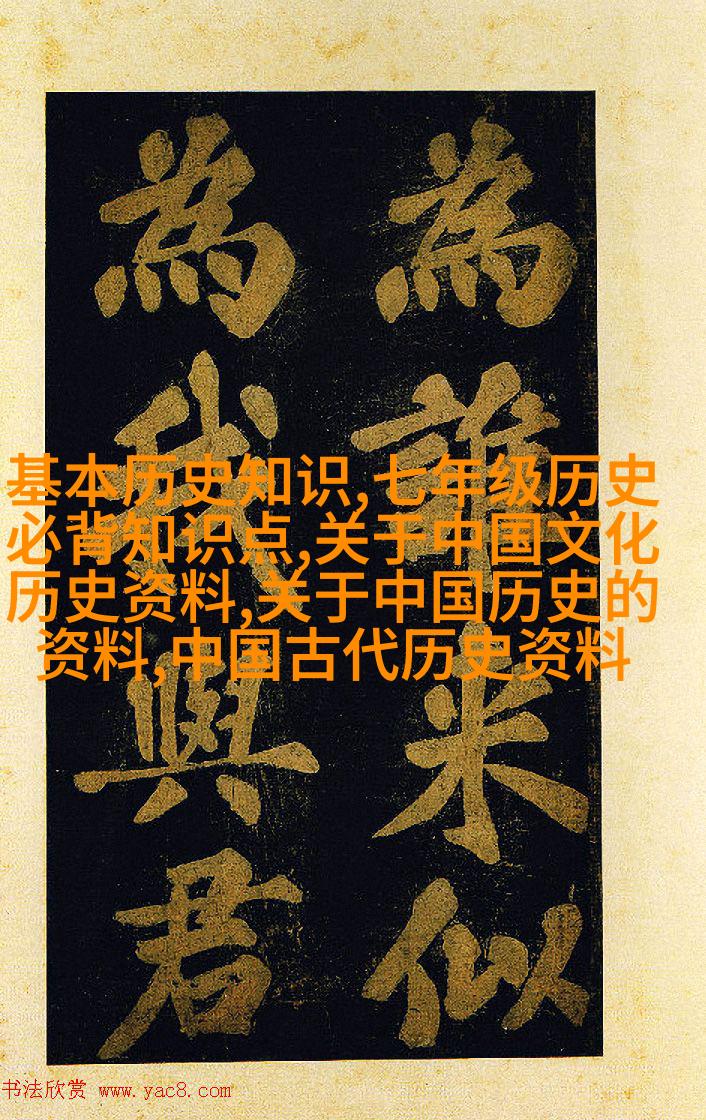 為誰米似
為我與君
基本历史知识,七年级历史
必背知识点,关于中国文化
历史资料,关于中国历史的
资料,中国古代历史资料
书法欣赏 www.yac8.com